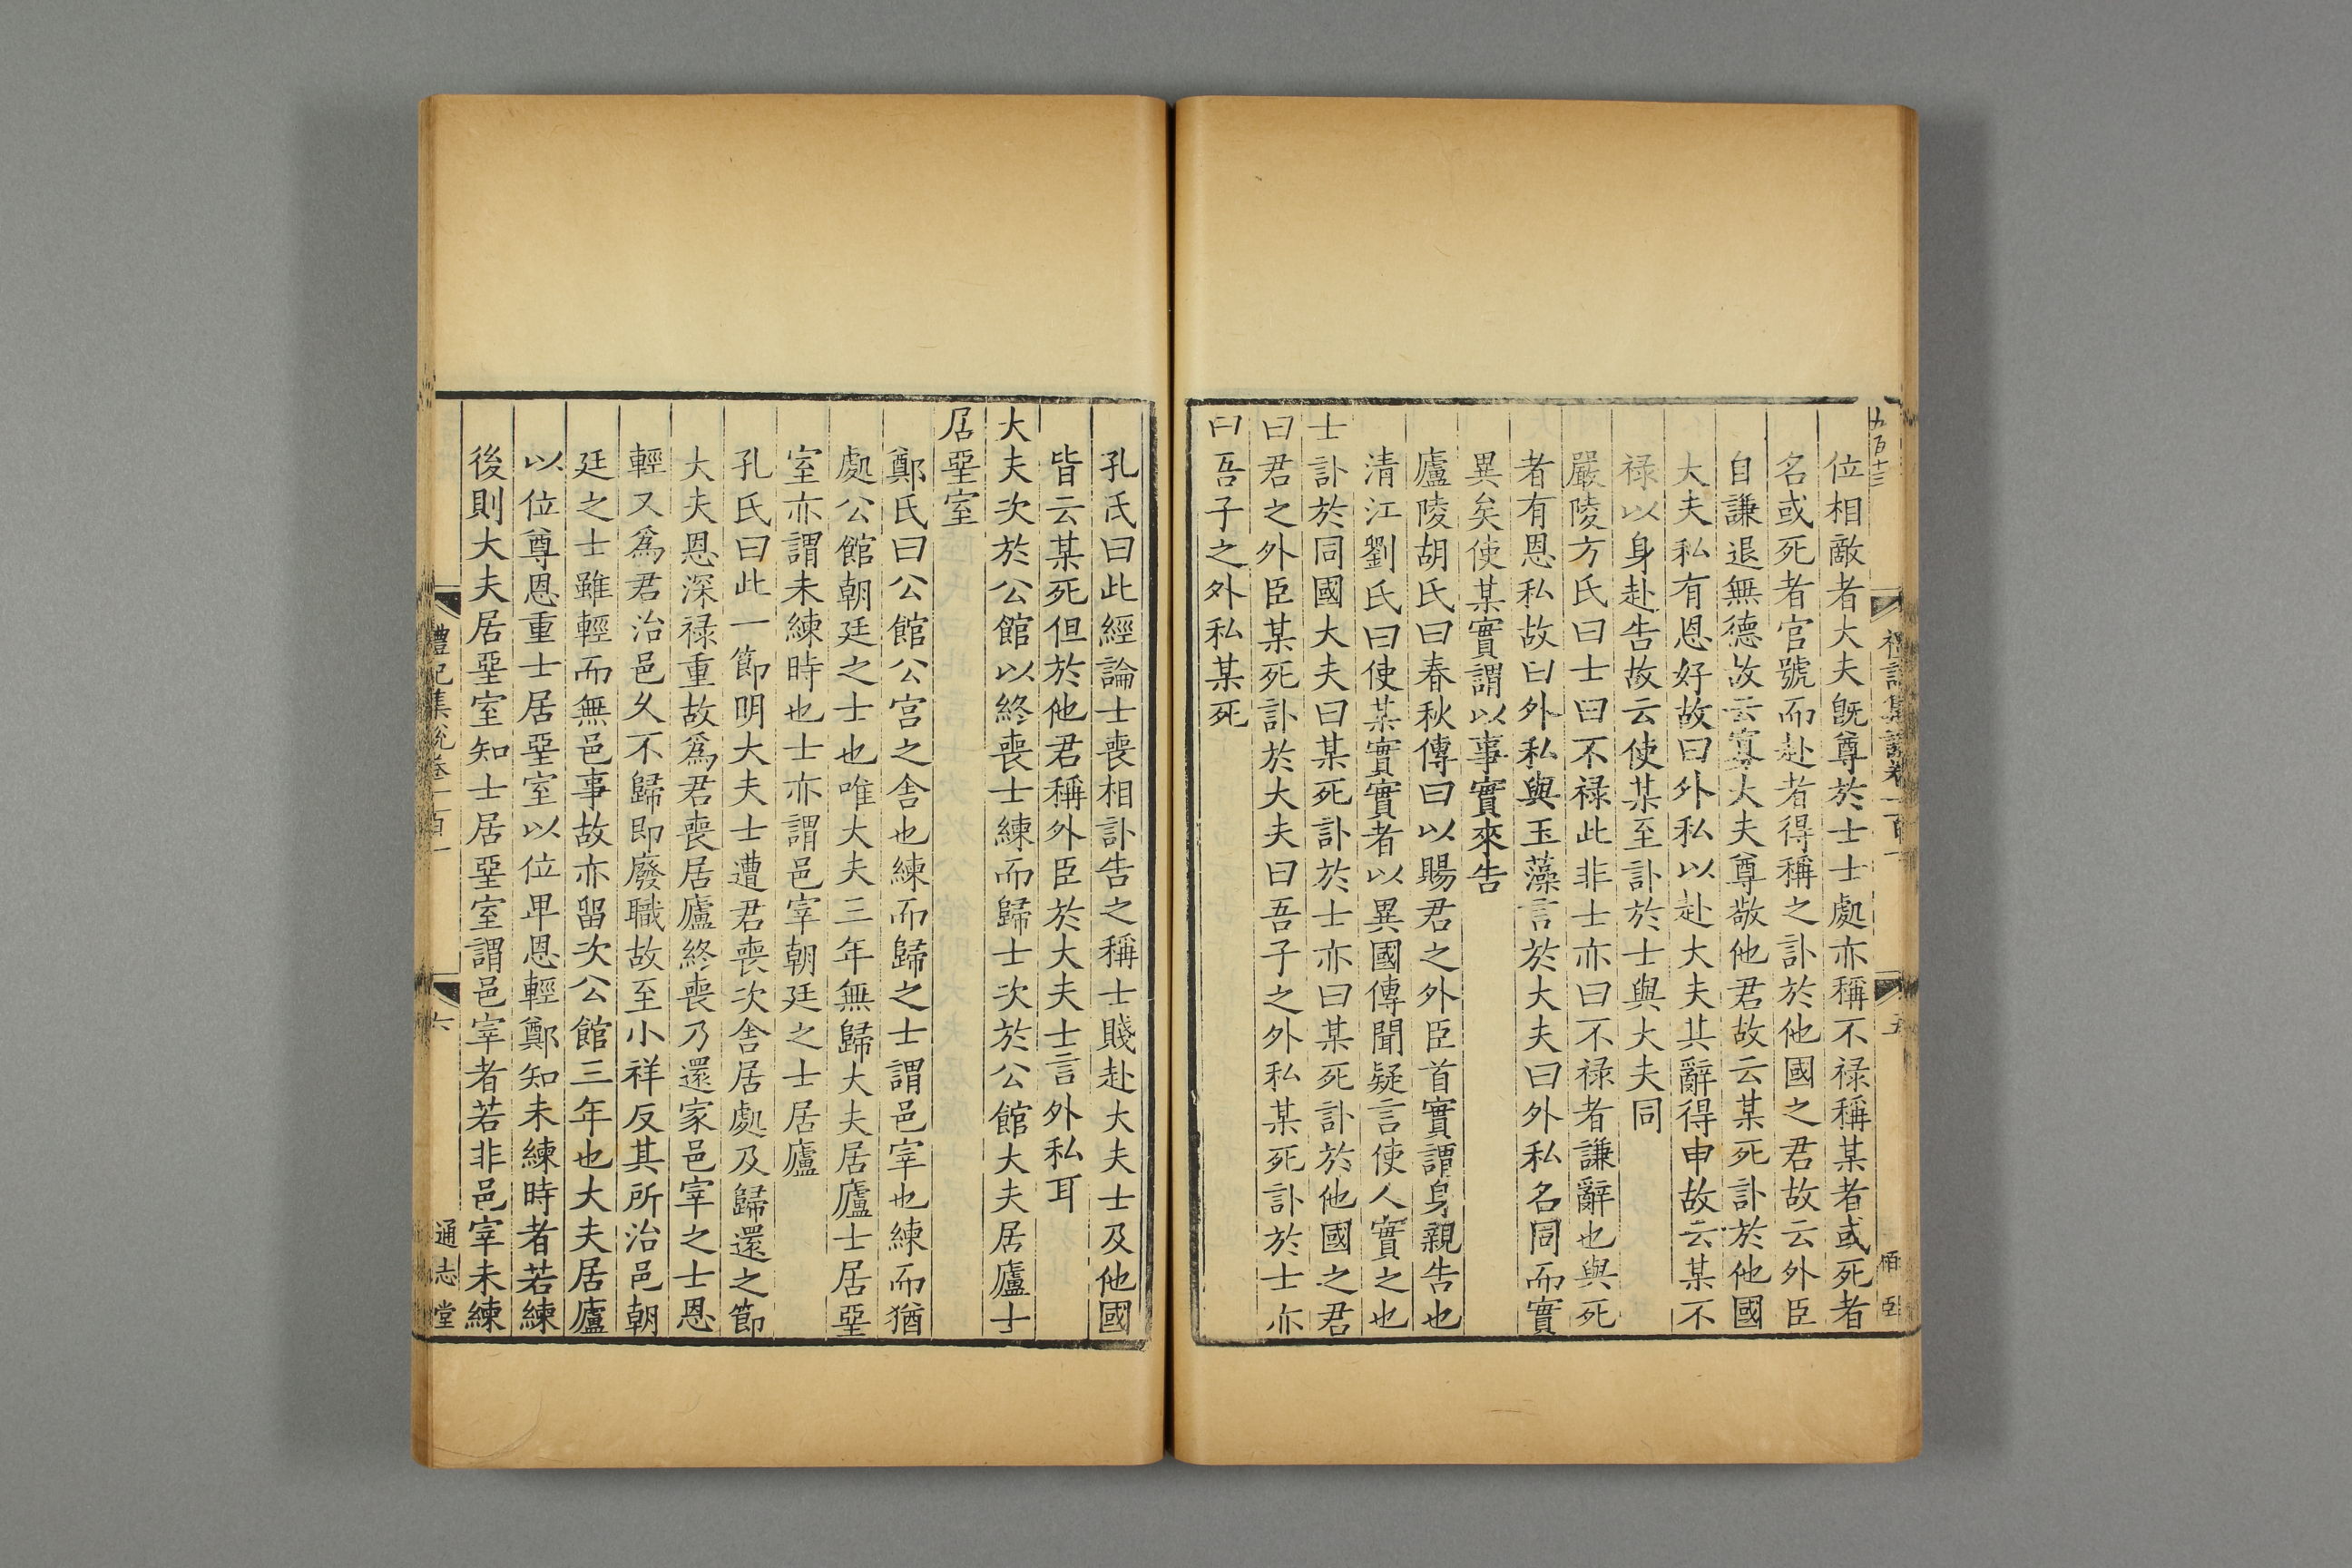 五百十三
禮記集說卷一百一
五
位相敵者大夫旣尊於士士處亦稱不禄稱某者或死者
名或死者官號而赴者得稱之訃於他國之君故云外臣
自謙退無德故云寡大夫尊敬他君故云某死訃於他國
大夫私有恩好故曰外私以赴大夫其辭得申故云某不
禄以身赴告故云使某至訃於士與大夫同
嚴陵方氏曰士曰不禄此非士亦曰不禄者謙辭也與死
者有恩私故曰外私與玉藻言於大夫曰外私名同而實
異矣使某實謂以事實來告
廬陵胡氏曰春秋傳曰以賜君之外臣首實謂身親告也
清江劉氏曰使某實實者以異國傳聞疑言使人實之也
士訃於同國大夫曰某死訃於士亦曰某死訃於他國之君
曰君之外臣某死訃於大夫曰吾子之外私某死訃於士亦
曰吾子之外私某死
孔氏曰此經論士喪相訃告之稱士賤赴大夫士及他國
皆云某死但於他君稱外臣於大夫士言外私耳
大夫次於公館以終喪士練而歸士次於公館大夫居廬士
居堊室
鄭氏曰公館公宮之舍也練而歸之士謂邑宰也練而猶
處公館朝廷之士也唯大夫三年無歸大夫居廬士居堊
室亦謂未練時也士亦謂邑宰朝廷之士居廬
孔氏曰此一節明大夫士遭君喪次舍居處及歸還之節
大夫恩深禄重故爲君喪居廬終喪乃還家邑宰之士恩
輕又爲君治邑久不歸即廢職故至小祥反其所治邑朝
廷之士雖輕而無邑事故亦留次公館三年也大夫居廬
以位尊恩重士居堊室以位卑恩輕鄭知未練時者若練
後則大夫居堊室知士居堊室謂邑宰者若非邑宰未練
禮記集說卷一百一
六
通志堂